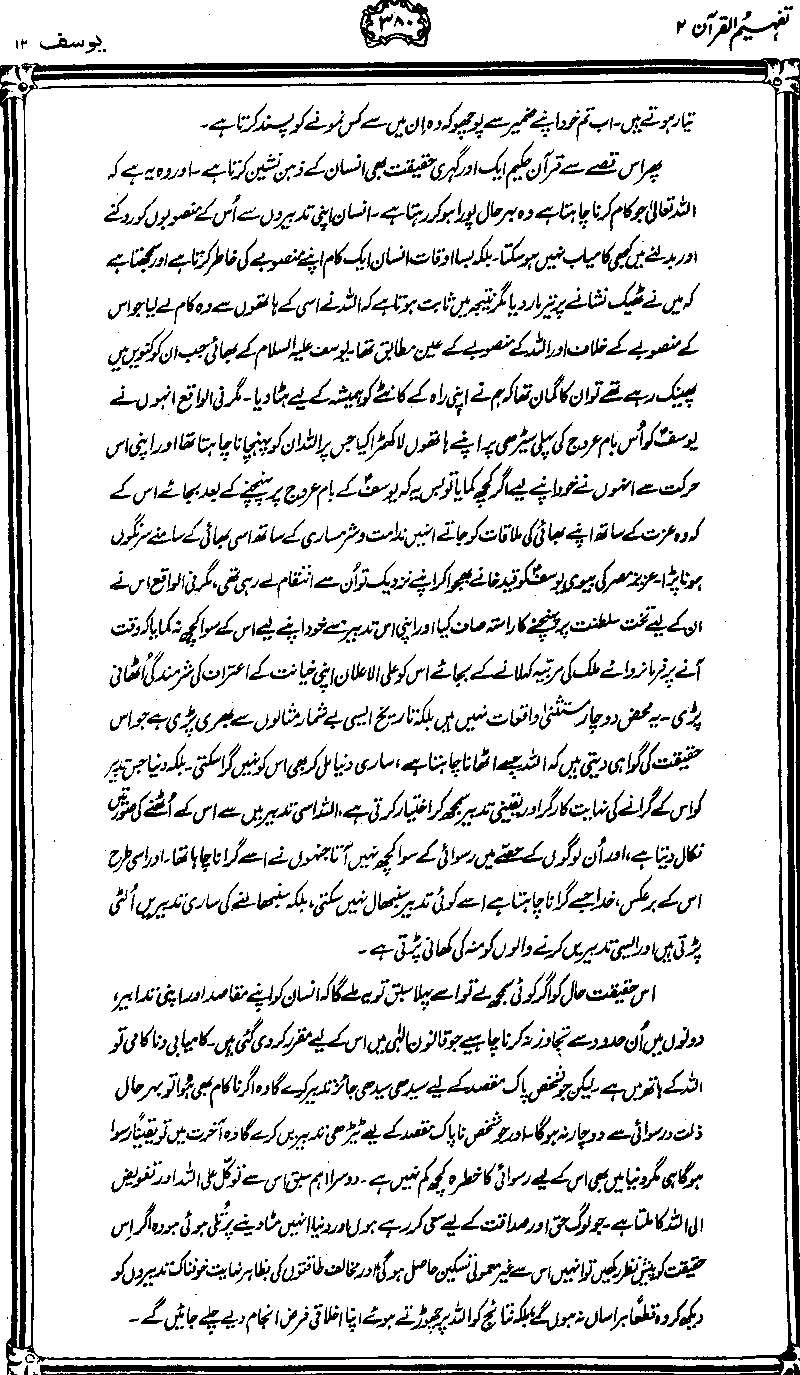 تفہیم القرآن ۲
۳۸۰
یوسف ۱۲
تیار ہوتے ہیں۔ اب تم خود اپنے ضمیر سے پوچھو کہ وہ ان میں سے کس نمونے کو پسند کرتا ہے۔
پھر اس قصے سے قرآن حکیم ایک اور گہری حقیقت بھی انسان کے ذہن نشین کرتا ہے۔ اور وہ یہ ہے کہ
اللہ تعالیٰ جو کام کرنا چاہتا ہے وہ بہرحال پورا ہو کر رہتا ہے۔ انسان اپنی تدبیروں سے اُس کے منصوبوں کو روکنے
اور بدلنے میں کبھی کامیاب نہیں ہو سکتا۔ بلکہ بسا اوقات انسان ایک کام اپنے منصوبے کی خاطر کرتا ہے اور سمجھتا ہے
کہ میں نے ٹھیک نشانے پر تیر مار دیا مگر نتیجہ میں ثابت ہوتا ہے کہ اللہ نے اسی کے ہاتھوں سے وہ کام لے لیا جو اس
کے منصوبے کے خلاف اور اللہ کے منصوبے کے عین مطابق تھا۔ یوسف علیہ السلام کے بھائی جب ان کو کنویں میں
پھینک رہے تھے تو ان کا گمان تھا کہ ہم نے اپنی راہ کے کانٹے کو ہمیشہ کے لیے ہٹا دیا۔ مگر فی الواقع انہوں نے
یوسفؑ کو اُس بام عروج کی پہلی سیڑھی پر اپنے ہاتھوں لا کھڑا کیا جس پر اللہ ان کو پہنچانا چاہتا تھا اور اپنی اس
حرکت سے انہوں نے خود اپنے لیے اگر کچھ کمایا تو بس یہ کہ یوسفؑ کے بام عروج پر پہنچنے کے بعد بجائے اس کے
کہ وہ عزت کے ساتھ اپنے بھائی کی ملاقات کو جاتے انہیں ندامت و شرمساری کے ساتھ اسی بھائی کے سامنے سرنگوں
ہونا پڑا۔ عزیز مصر کی بیوی یوسفؑ کو قید خانے بھجوا کر اپنے نزدیک تو اُن سے انتقام لے رہی تھی، مگر فی الواقع اس نے
ان کے لیے تخت سلطنت پر پہنچنے کا راستہ صاف کیا اور اپنی اس تدبیر سے خود اپنے لیے اس کے سوا کچھ نہ کمایا کہ وقت
آنے پر فرمانروائے ملک کی مربیہ کہلانے کے بجائے اس کو علی الاعلان اپنی خیانت کے اعتراف کی شرمندگی اُٹھانی
پڑی۔ یہ محض دو چار مستثنیٰ واقعات نہیں ہیں بلکہ تاریخ ایسی بے شمار مثالوں سے بھری پڑی ہے جو اس
حقیقت کی گواہی دیتی ہیں کہ اللہ جسے اٹھانا چاہتا ہے، ساری دنیا مل کر بھی اس کو نہیں گرا سکتی۔ بلکہ دنیا جس تدبیر
کو اس کے گرانے کی نہایت کارگر اور یقینی تدبیر سمجھ کر اختیار کرتی ہے، اللہ اسی تدبیر میں سے اس کے اُٹھنے کی صورتیں
نکال دیتا ہے، اور اُن لوگوں کے حصے میں رسوائی کے سوا کچھ نہیں آتا جنہوں نے اسے گرانا چاہا تھا۔ اور اسی طرح
اس کے برعکس، خدا جسے گرانا چاہتا ہے اسے کوئی تدبیر سنبھال نہیں سکتی، بلکہ سنبھالنے کی ساری تدبیریں اُلٹی
پڑتی ہیں اور ایسی تدبیریں کرنے والوں کو منہ کی کھانی پڑتی ہے۔
اس حقیقت حال کو اگر کوئی سمجھ لے تو اسے پہلا سبق تو یہ ملے گا کہ انسان کو اپنے مقاصد اور اپنی تدابیر،
دونوں میں اُن حدود سے تجاوز نہ کرنا چاہیے جو قانون الٰہی میں اس کے لیے مقرر کر دی گئی ہیں۔ کامیابی و ناکامی تو
اللہ کے ہاتھ میں ہے۔ لیکن جو شخص پاک مقصد کے لیے سیدھی سیدھی جائز تدبیر کرے گا وہ اگر ناکام بھی ہوا تو بہرحال
ذلت و رسوائی سے دوچار نہ ہوگا۔ اور جو شخص ناپاک مقصد کے لیے ٹیڑھی تدبیریں کرے گا وہ آخرت میں تو یقیناً رسوا
ہوگا ہی مگر دنیا میں بھی اس کے لیے رسوائی کا خطرہ کچھ کم نہیں ہے۔ دوسرا اہم سبق اس سے توکل علی اللہ اور تفویض
الی اللہ کا ملتا ہے۔ جو لوگ حق اور صداقت کے لیے سعی کر رہے ہوں اور دنیا انہیں مٹا دینے پر تلی ہوئی ہو وہ اگر اِس
حقیقت کو پیش نظر رکھیں تو انہیں اس سے غیر معمولی تسکین حاصل ہوگی، اور مخالف طاقتوں کی بظاہر نہایت خوفناک تدبیروں کو
دیکھ کر وہ قطعاً ہراساں نہ ہوں گے بلکہ نتائج کو اللہ پر چھوڑتے ہوئے اپنا اخلاقی فرض انجام دیے چلے جائیں گے۔